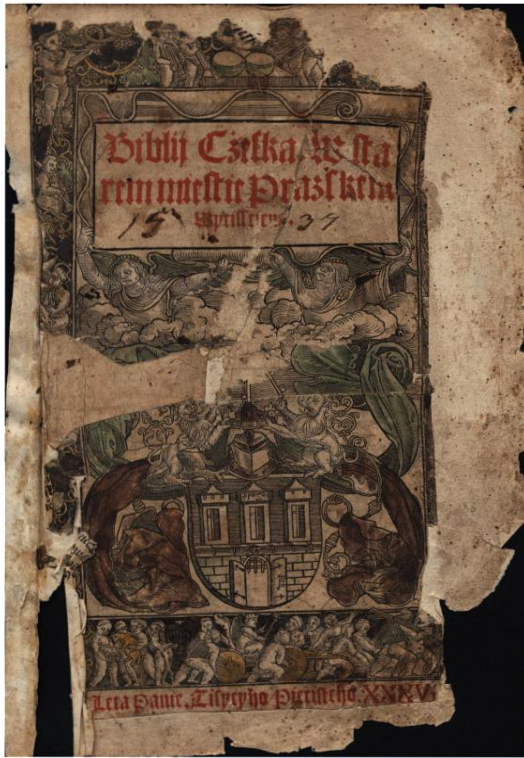 Biblij Cžeska. W sta
rem miestie Pražskem
Wytisstena.
15 37
Leta Panie. Tisycyho Pietisteho. XXXVII